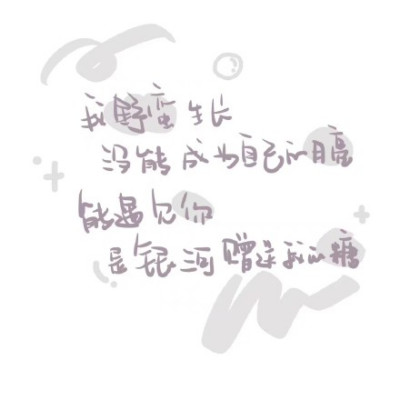 我野蛮生长
没能成为自己的月亮
能遇见你
是银河赠予我的糖